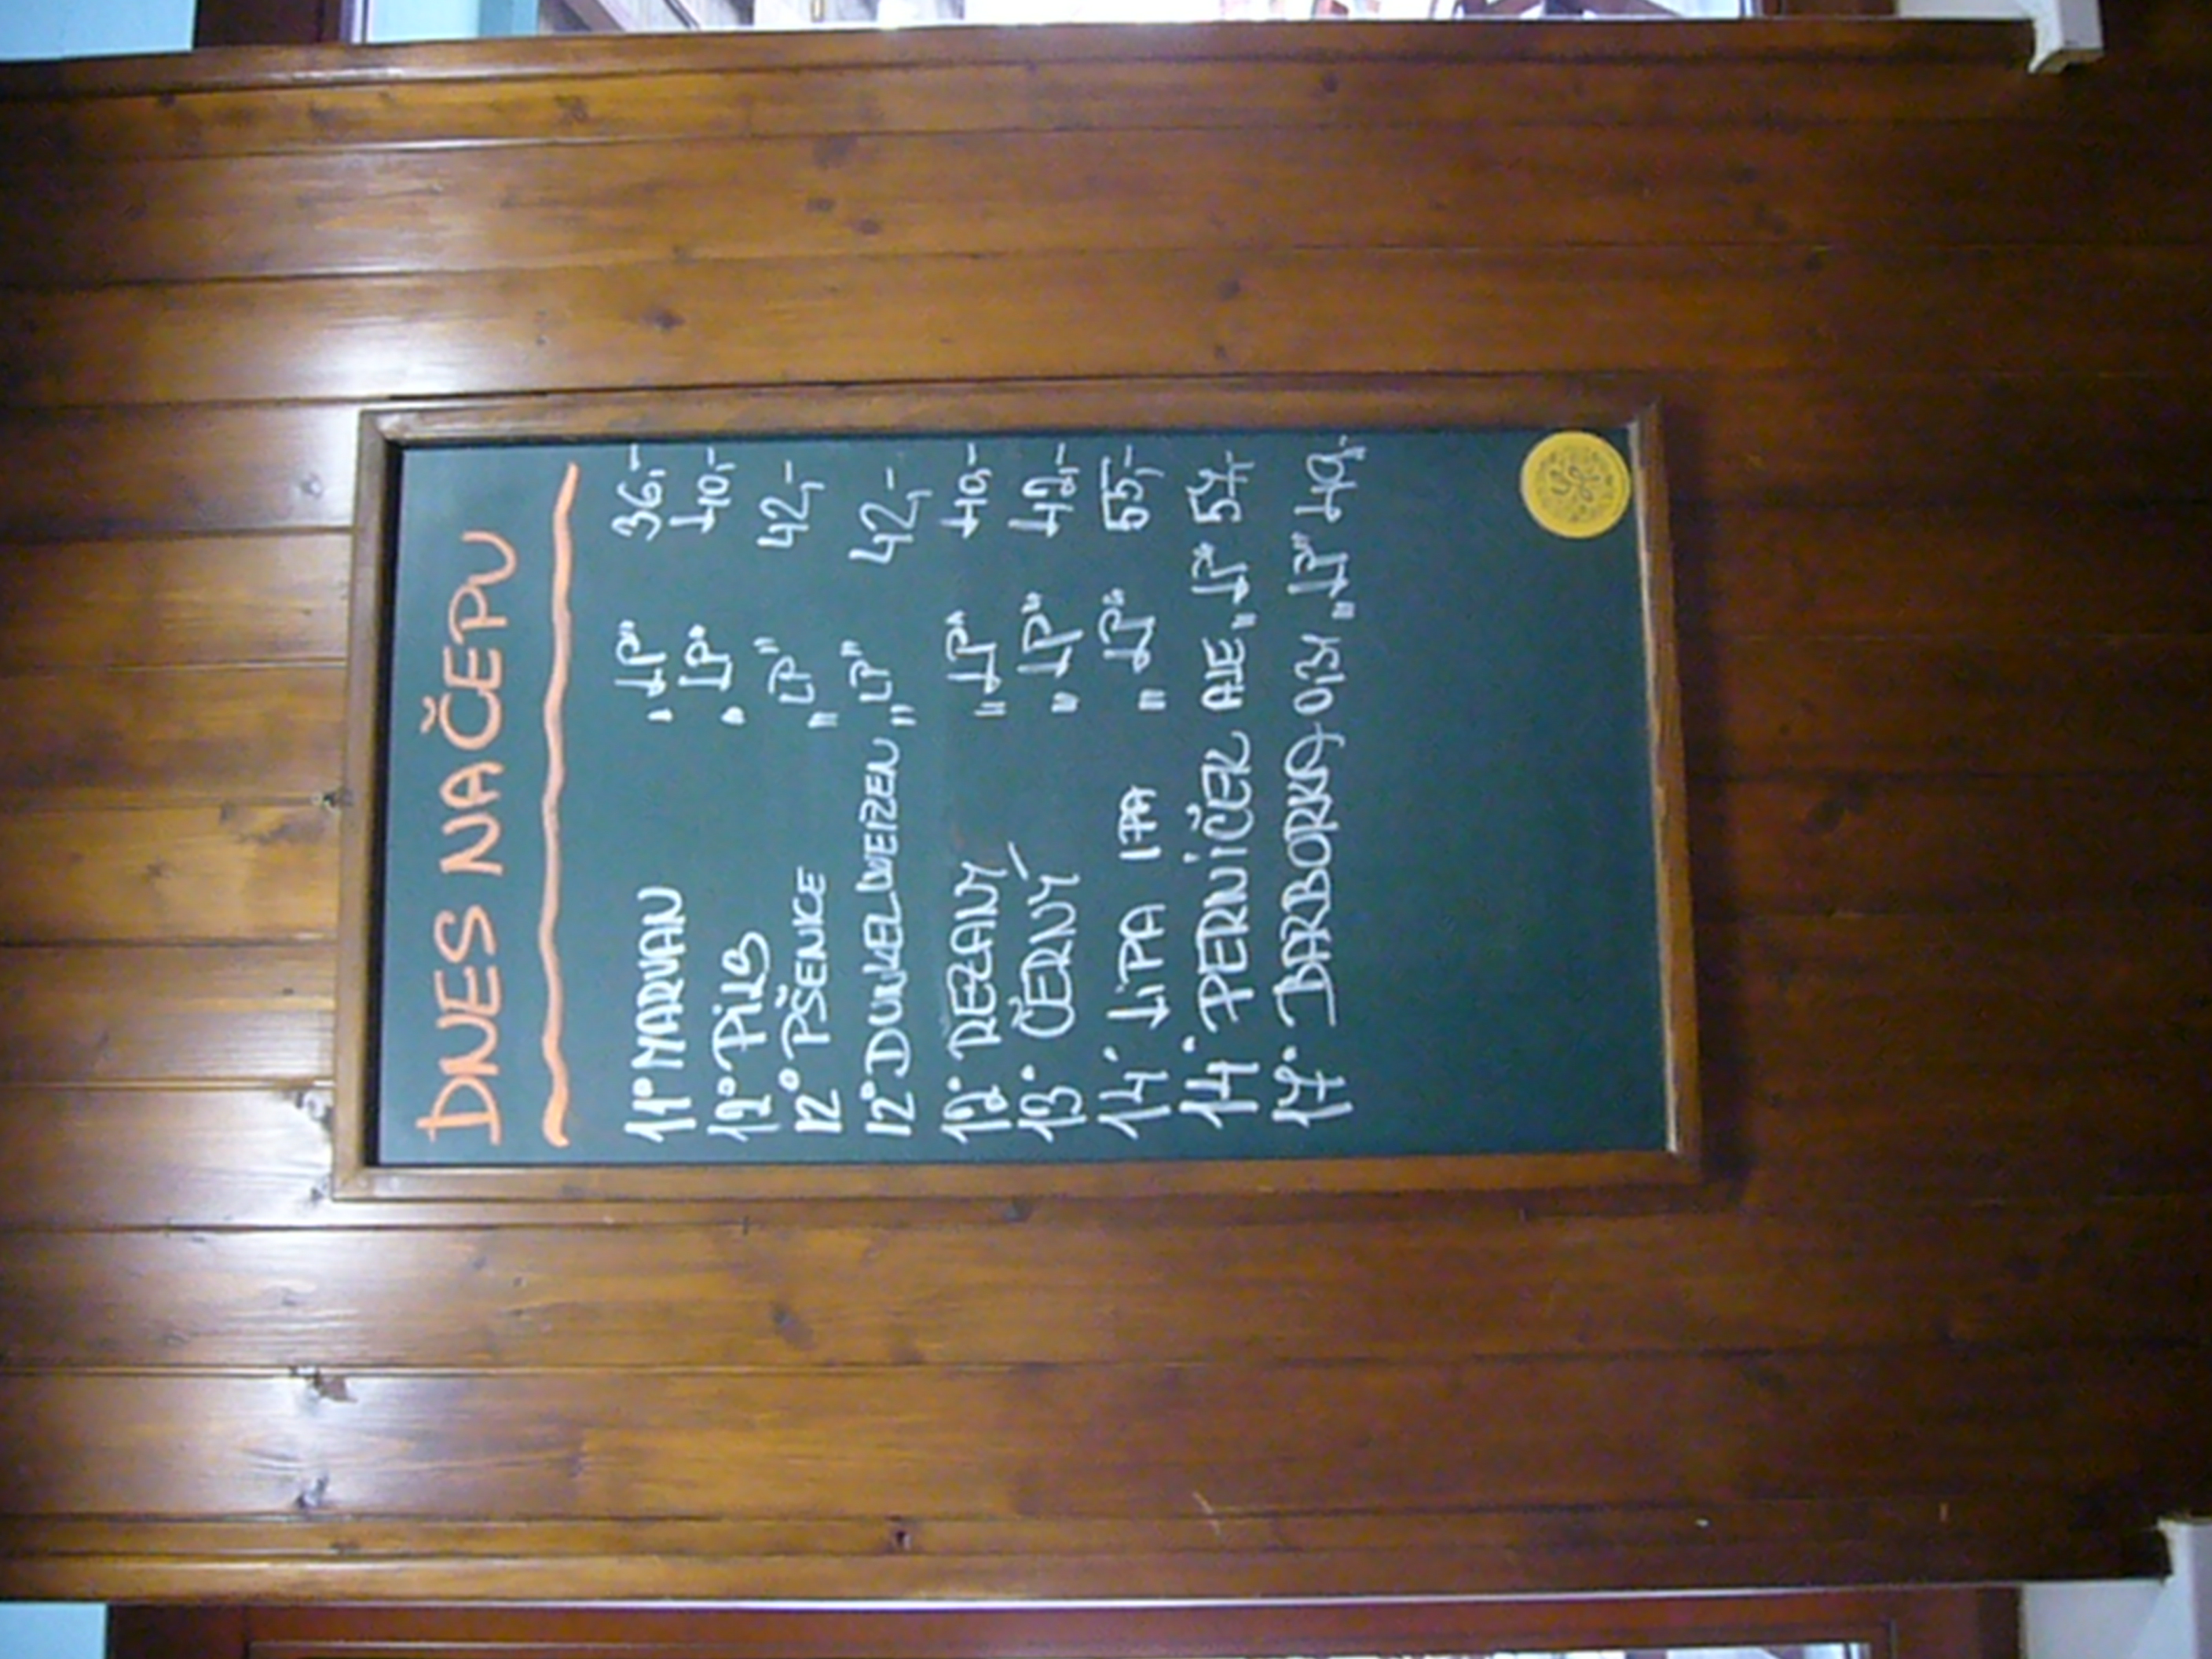 DNES NA ČEPU
11° MARVAN „LP“ 36,-
12° PILS „LP“ 40,-
12° PŠENICE „LP” 42,-
12° DUNKELWEIZEN „LP” 42,-
12° ŘEZANÝ „LP“ 40,-
13° ČERNÝ „LP“ 42,-
14° LiPA IPA „LP“ 55,-
14° PERNÍČEK ALE „LP“ 57,-
17° BARBORKA 0,3l „LP” 49,-